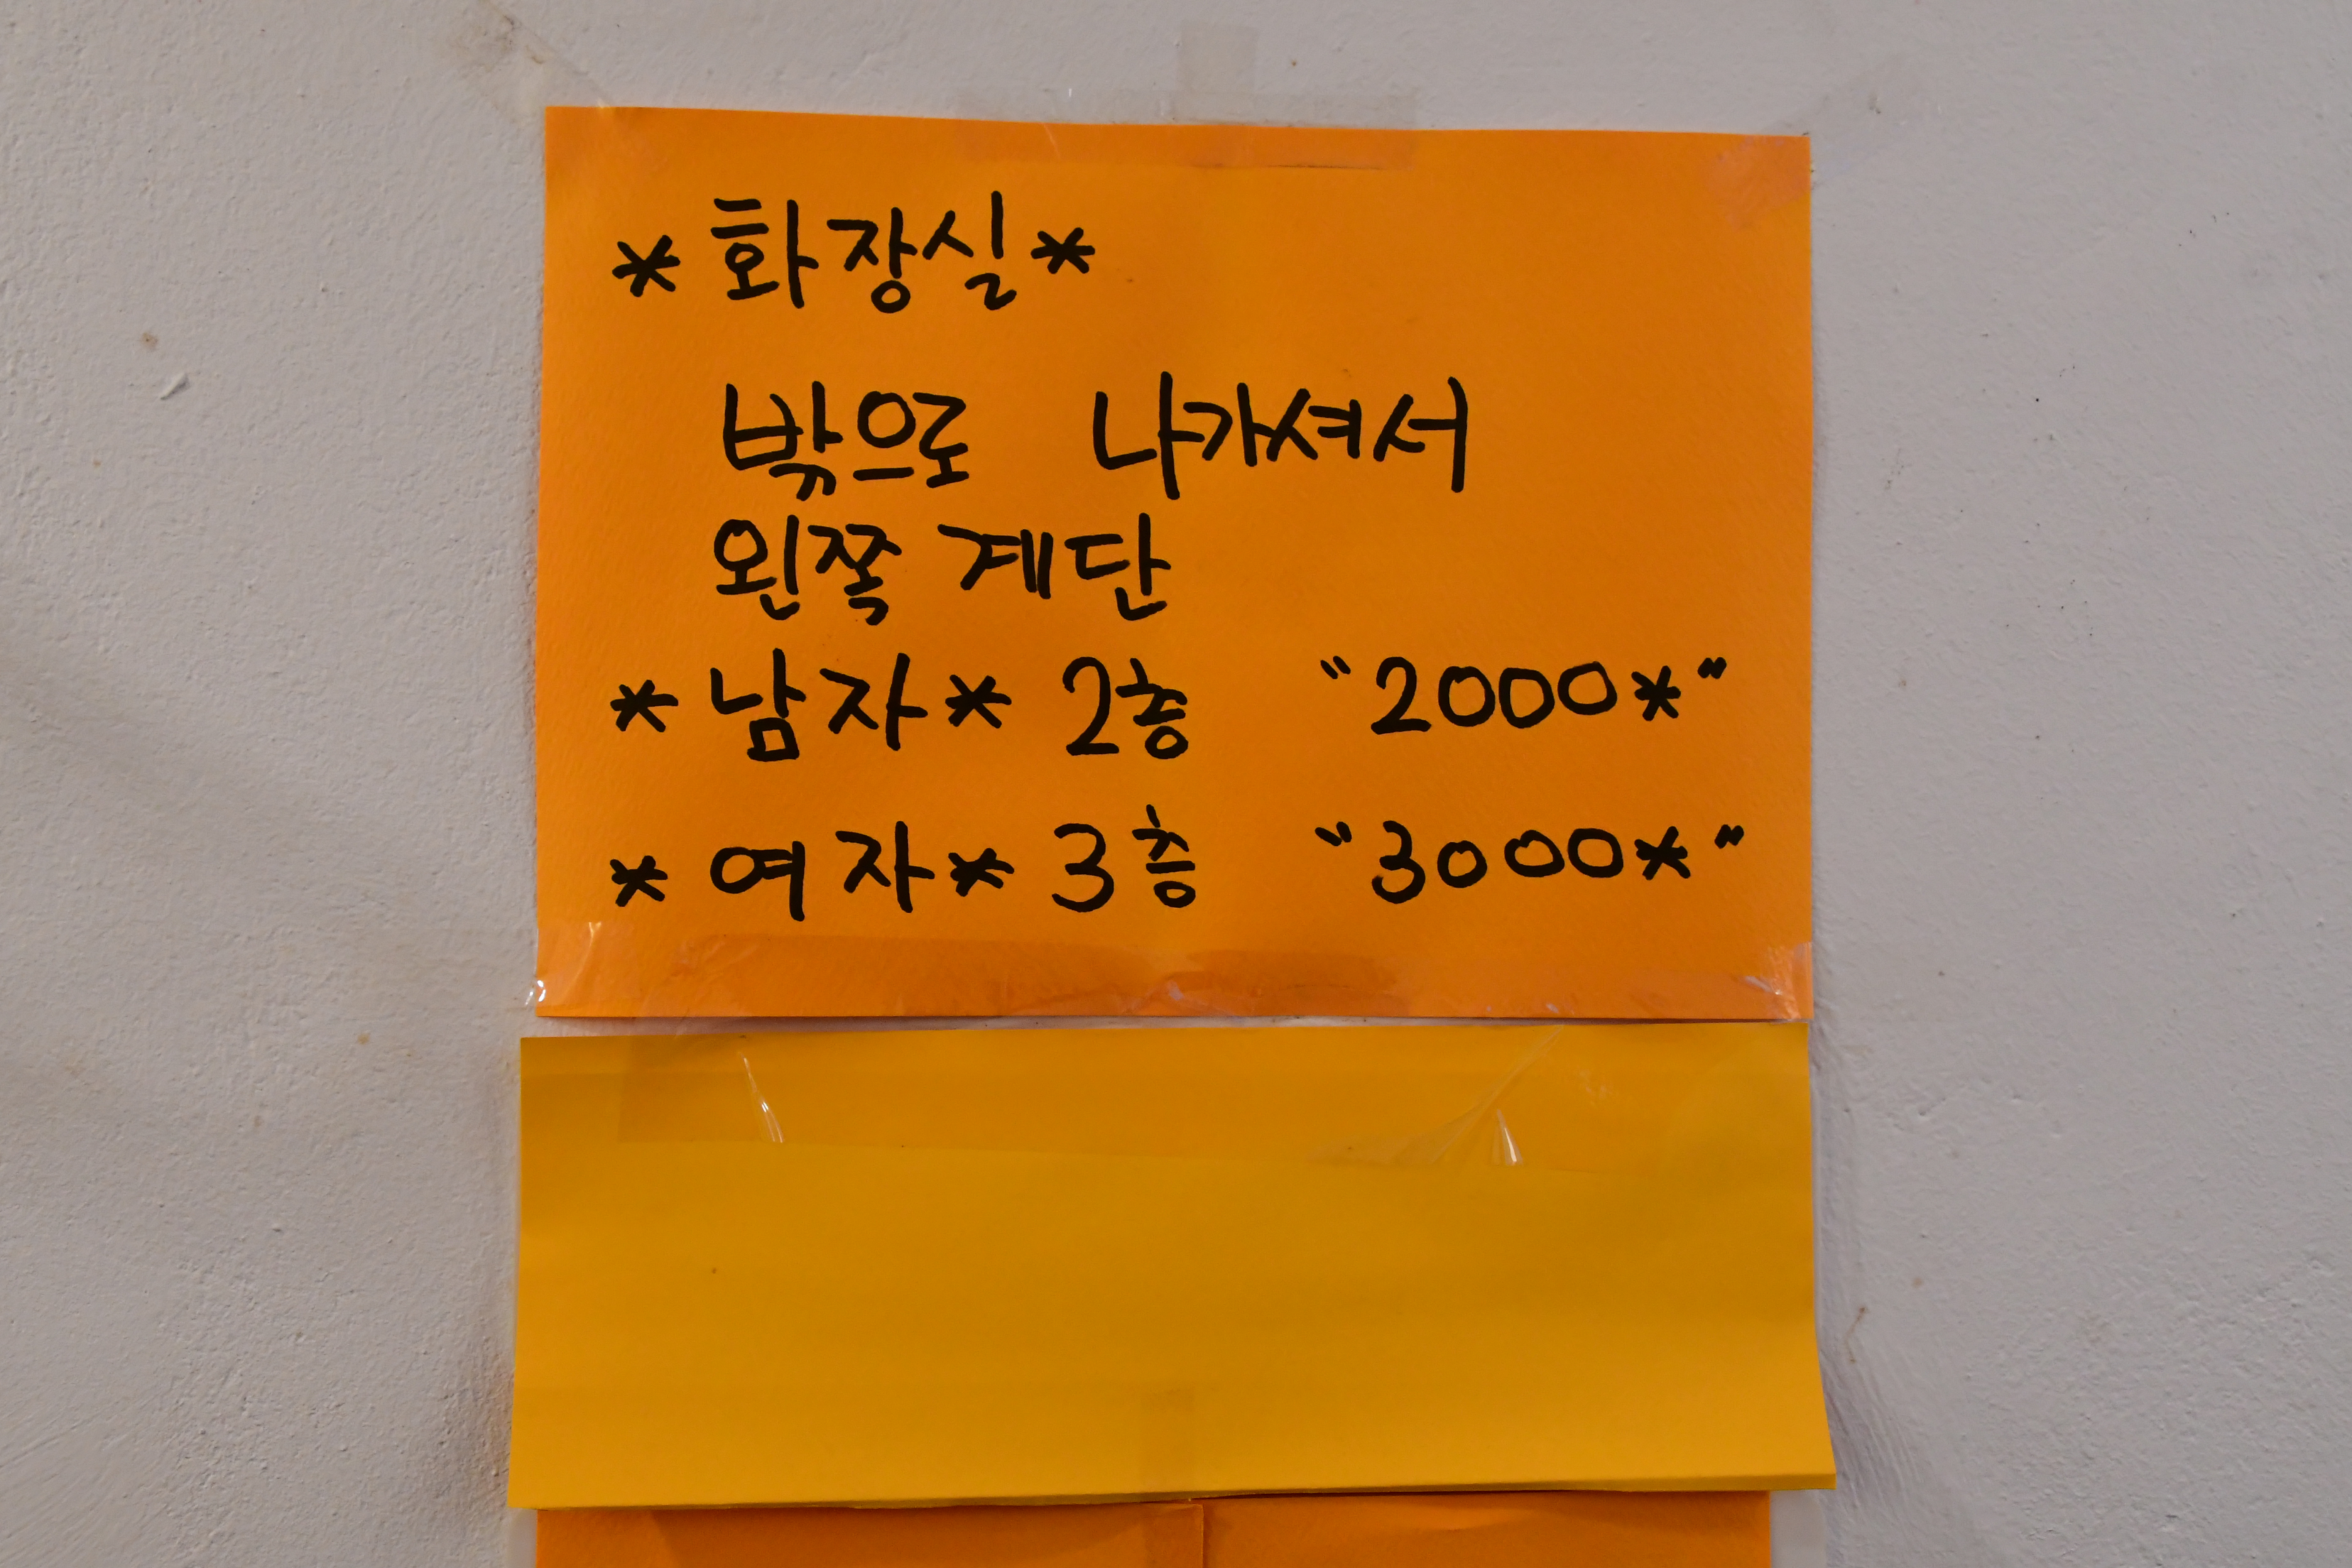 *화장실*
밖으로 나가셔서
왼쪽 계단
*남자* 2층 "2000*"
*여자* 3층 "3000*"